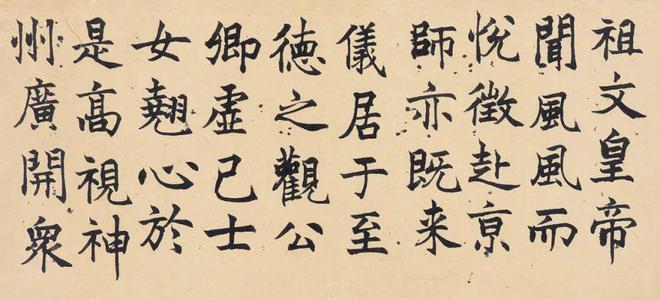 祖文皇帝
聞風風而
悅徵赴京
師亦既来
儀居于至
德之觀公
卿虛己士
女翹心於
是高視神
州廣開衆